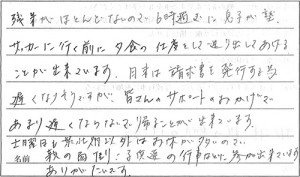 残業がほとんどないので、6時過ぎに息子が塾、
サッカーに行く前に夕食の仕度をして送り出してあげる
ことが出来ています。月末は請求書を発行する為
遅くなりそうですが、皆さんのサポートのおかげで
あまり遅くならないで帰ることが出来てます。
土曜日も 以外はお休が多いので、
名前 親の面倒 子供達の行事など、 が出来ています
ありがたいです。